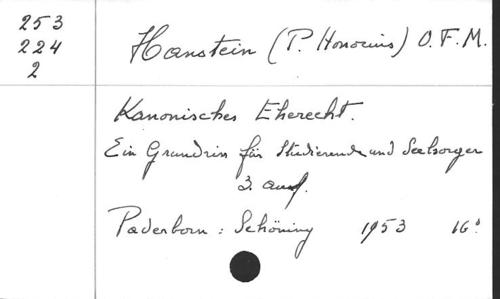 253
224
2
Hanstein (P. Honorius) O. F. M.
Kanonisches Eherecht.
Ein Grundriss für Studierende und Seelsorger
3. Aufl.
Paderborn : Schöning 1953 16°